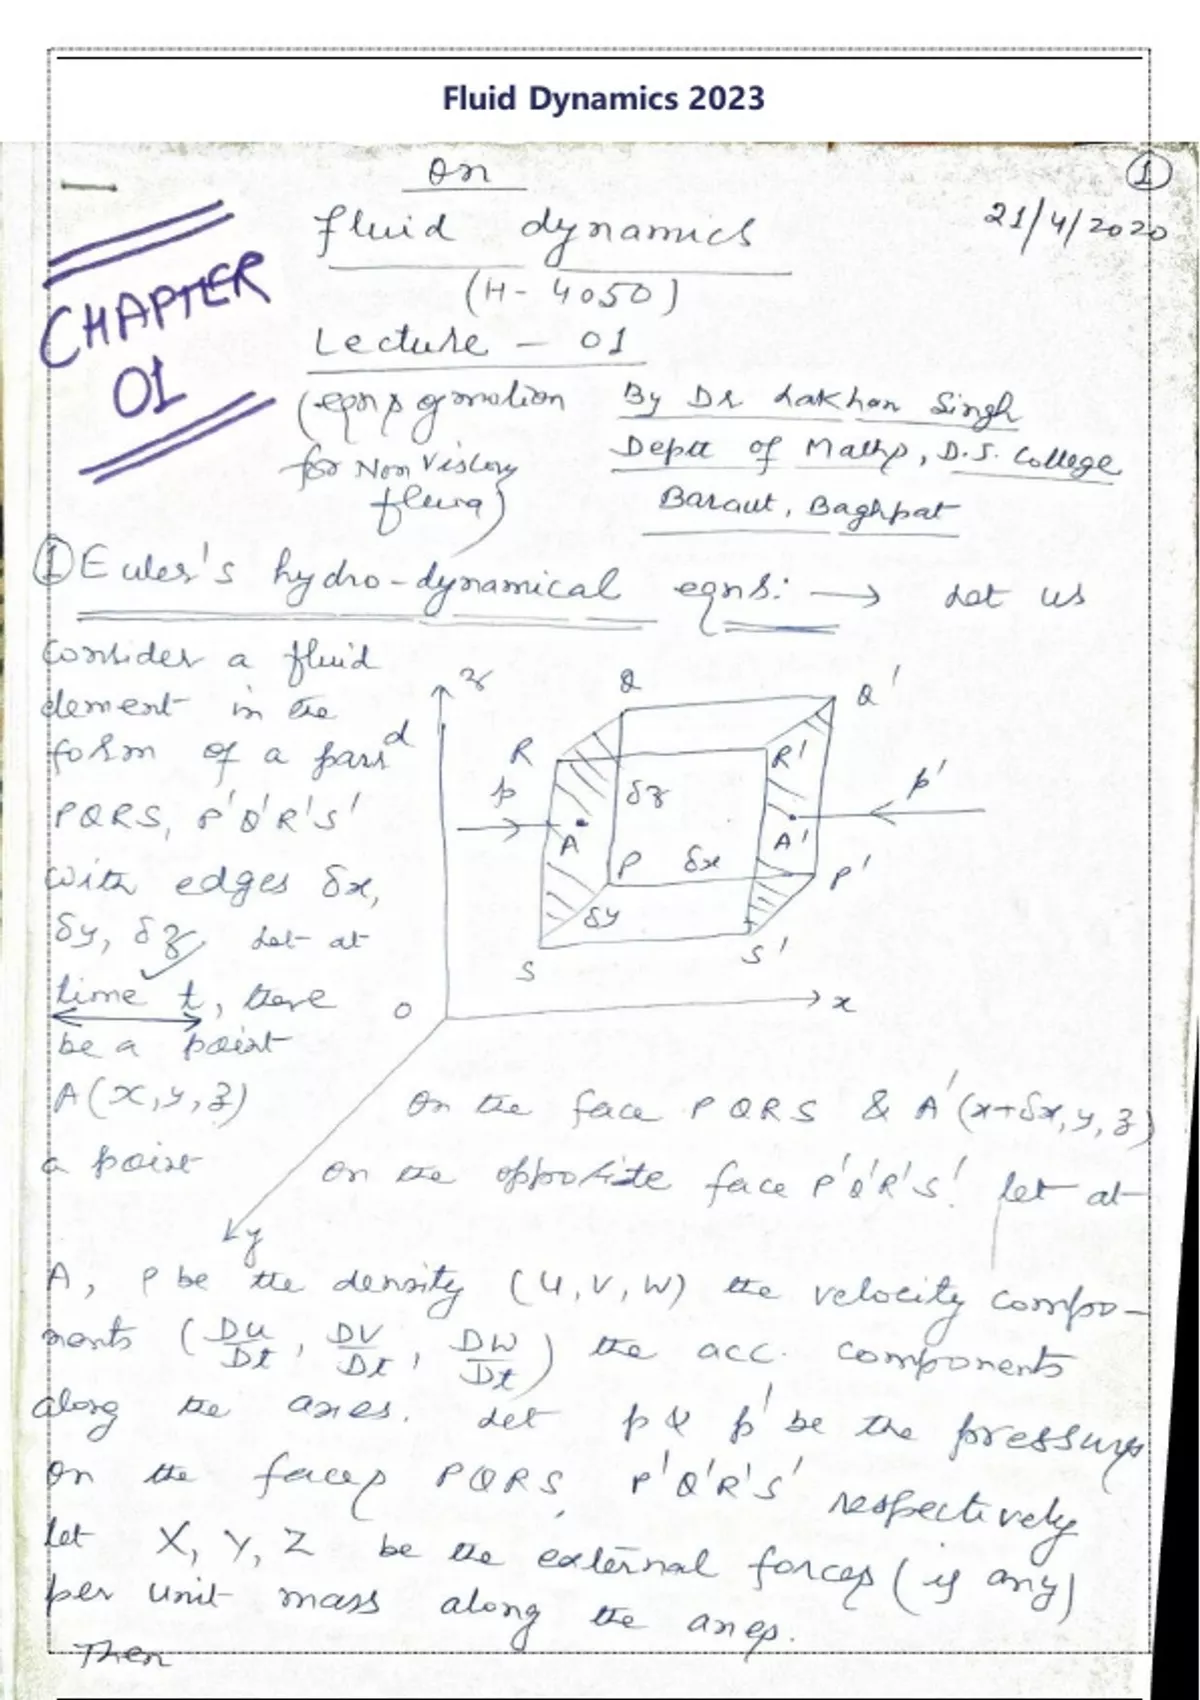 Fluid Dynamics 2023
on
1
21/4/2020
fluid dynamics
(H-4050)
CHAPTER
01
Lecture - 01
(eqns of motion
for Non Viscous
By Dr Lakhan Singh
Deptt of Maths, D.S. College
Baraut, Baghpat
① Euler's hydro-dynamical eqns: → Let us
consider a fluid
element in the
form of a parr d
PQRS, P'Q'R'S'
with edges δx,
δy, δz, Let at
time t, there
be a point
A(x,y,z)
a point
z
Q
Q'
R
R'
p
δz
p'
A
A'
P
δx
P'
δy
S
S'
O
x
y
on the face PQRS & A'(x+δx, y, z)
on the opposite face P'Q'R'S'. let at
A, ρ be the density (u, v, w) the velocity compo-
nents (Du/Dt, Dv/Dt, Dw/Dt) the acc. components
along the axes. Let p & p' be the pressures
on the faces PQRS, P'Q'R'S' respectively
let X, Y, Z be the external forces (if any)
per unit mass along the axes.
Then